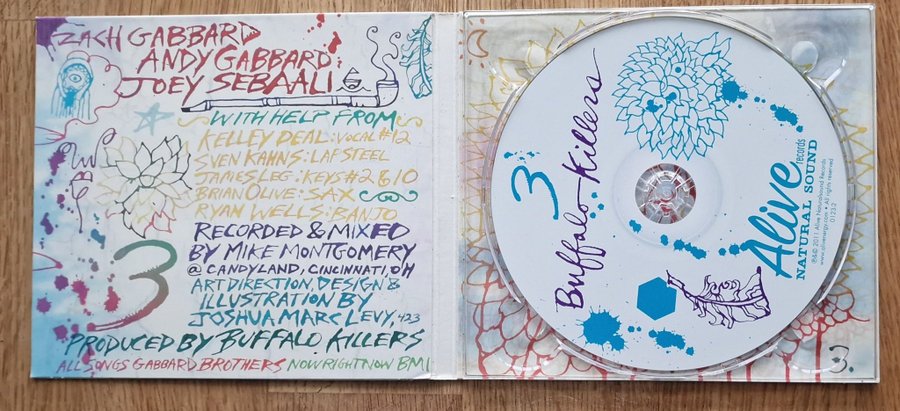 ZACH GABBARD
ANDY GABBARD
JOEY SEBAALI
WITH HELP FROM
KELLEY DEAL: VOCAL #12
SVEN KAHNS: LAP STEEL
JAMES LEG: KEYS #2 8 10
BRIAN OLIVE: SAX
RYAN WELLS: BANJO
RECORDED & MIXED
BY MIKE MONTGOMERY
@ CANDYLAND, CINCINNATI, OH
ART DIRECTION, DESIGN &
ILLUSTRATION BY
JOSHUA MARC LEVY, 423
3
PRODUCED BY BUFFALO KILLERS
ALL SONGS GABBARD BROTHERS NOWRIGHTNOW BMI
Buffalo Killers
3
Alive records
NATURAL SOUND
℗&© 2011 Alive Naturalsound Records
www.alivenergy.com • All rights reserved
0123-2
3